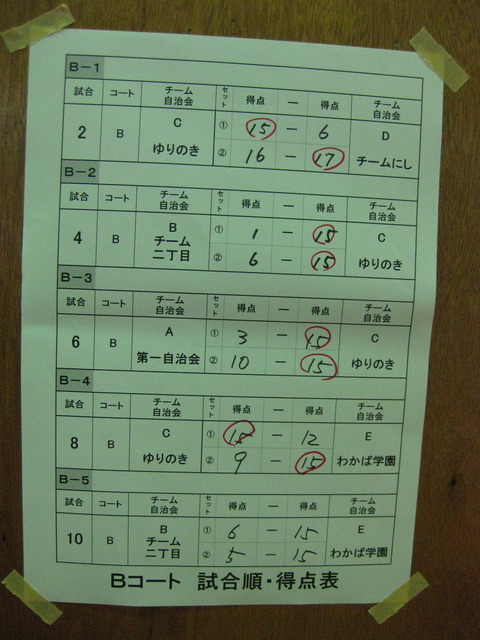 B－1
試合 コート チーム 自治会 セット 得点 － 得点 チーム 自治会
2 B C ゆりのき ① 15 － 6 D チームにし
② 16 － 17
B－2
試合 コート チーム 自治会 セット 得点 － 得点 チーム 自治会
4 B B チーム 二丁目 ① 1 － 15 C ゆりのき
② 6 － 15
B－3
試合 コート チーム 自治会 セット 得点 － 得点 チーム 自治会
6 B A 第一自治会 ① 3 － 15 C ゆりのき
② 10 － 15
B－4
試合 コート チーム 自治会 セット 得点 － 得点 チーム 自治会
8 B C ゆりのき ① 15 － 12 E わかば学園
② 9 － 15
B－5
試合 コート チーム 自治会 セット 得点 － 得点 チーム 自治会
10 B B チーム 二丁目 ① 6 － 15 E わかば学園
② 5 － 15
Bコート 試合順・得点表